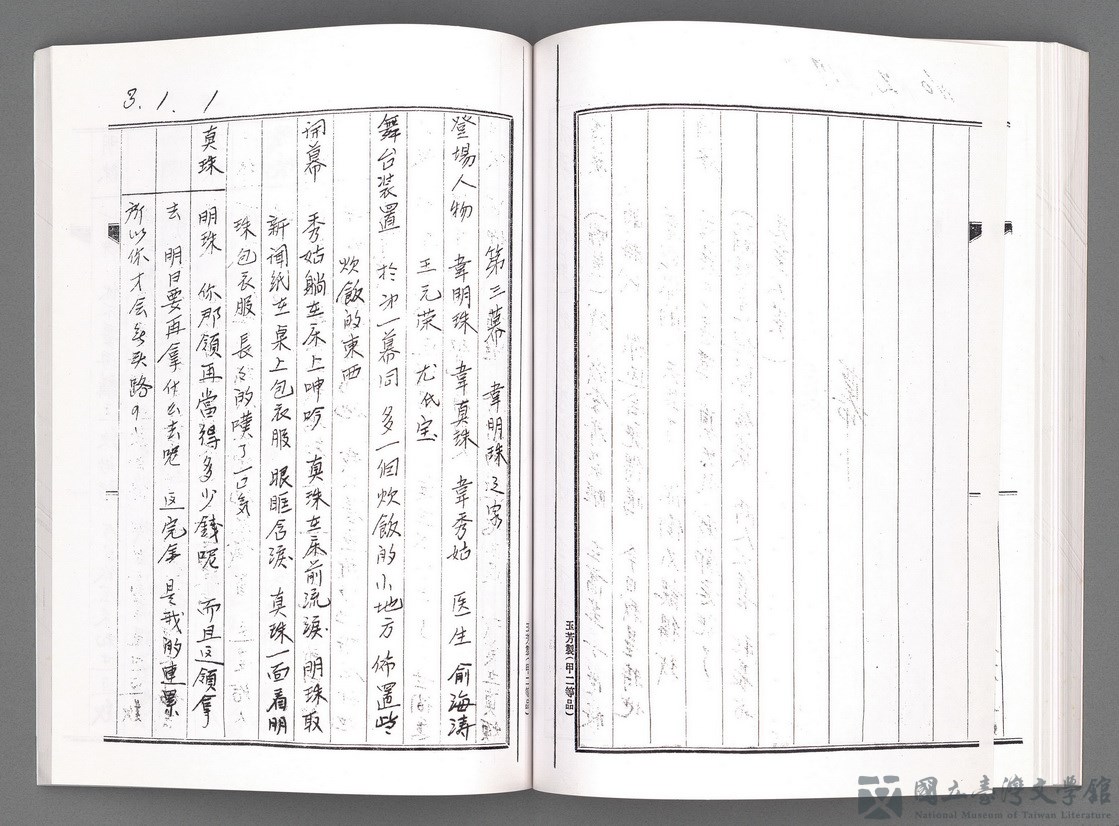 3.1.1
第三幕 韋明珠之家
登場人物 韋明珠 韋真珠 韋秀姑 医生 俞海涛
王元荣 尤氏宝
舞台装置 於沖一幕同 多一個炊飯的小地方 佈置些
炊飯的東西
開幕 秀姑躺在床上呻吟 真珠在床前流淚 明珠取
新闻纸在桌上包衣服 眼眶含淚 真珠一面看明
珠包衣服 長々的嘆了一口気
真珠 明珠 你那領再當得多少錢呢 而且这領拿
去 明日要再拿什么去呢 这完全是我的連累
所以你才会
玉芳製(甲二等品)
玉芳製(甲二等品)
國立臺灣文學館
National Museum of Taiwan Literature